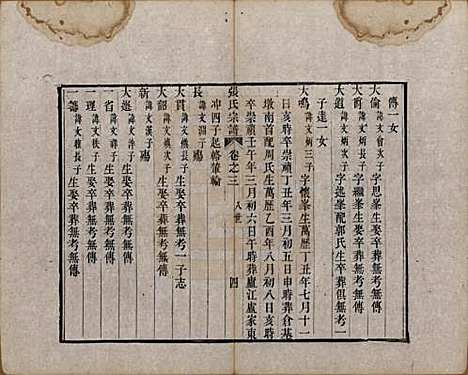 傳一女
大倫 諱文會次子 字思峯生娶卒葬無考無傳
大爵 諱文炳長子 字繼峯生娶卒葬無考無傳
大道 諱文炳次子 字逵峯配郭氏生卒葬俱無考一
子達一女
大鳴 諱文炳三子 字懷峯生萬歷丁丑年七月十一
日亥時卒崇禎丁丑年三月初五日申時葬倉基
墩南首配周氏生萬歷乙酉年八月初八日亥時
卒崇禎壬午年三月初六日午時葬盧江盧家東
冲四子起輅輦輪
張氏宗譜 卷之三 八世 四
長 諱文淵子殤
大貫 諱文機長子 生娶卒葬無考一子志
大韶 諱文機次子 生娶卒葬無考無傳
新 諱文漢子殤
大選 諱文洋子 生娶卒葬無考無傳
一省 諱文 次子 生娶卒葬無考無傳
一理 諱文 次子 生娶卒葬無考無傳
一籌 諱文 長子 生娶卒葬無考無傳